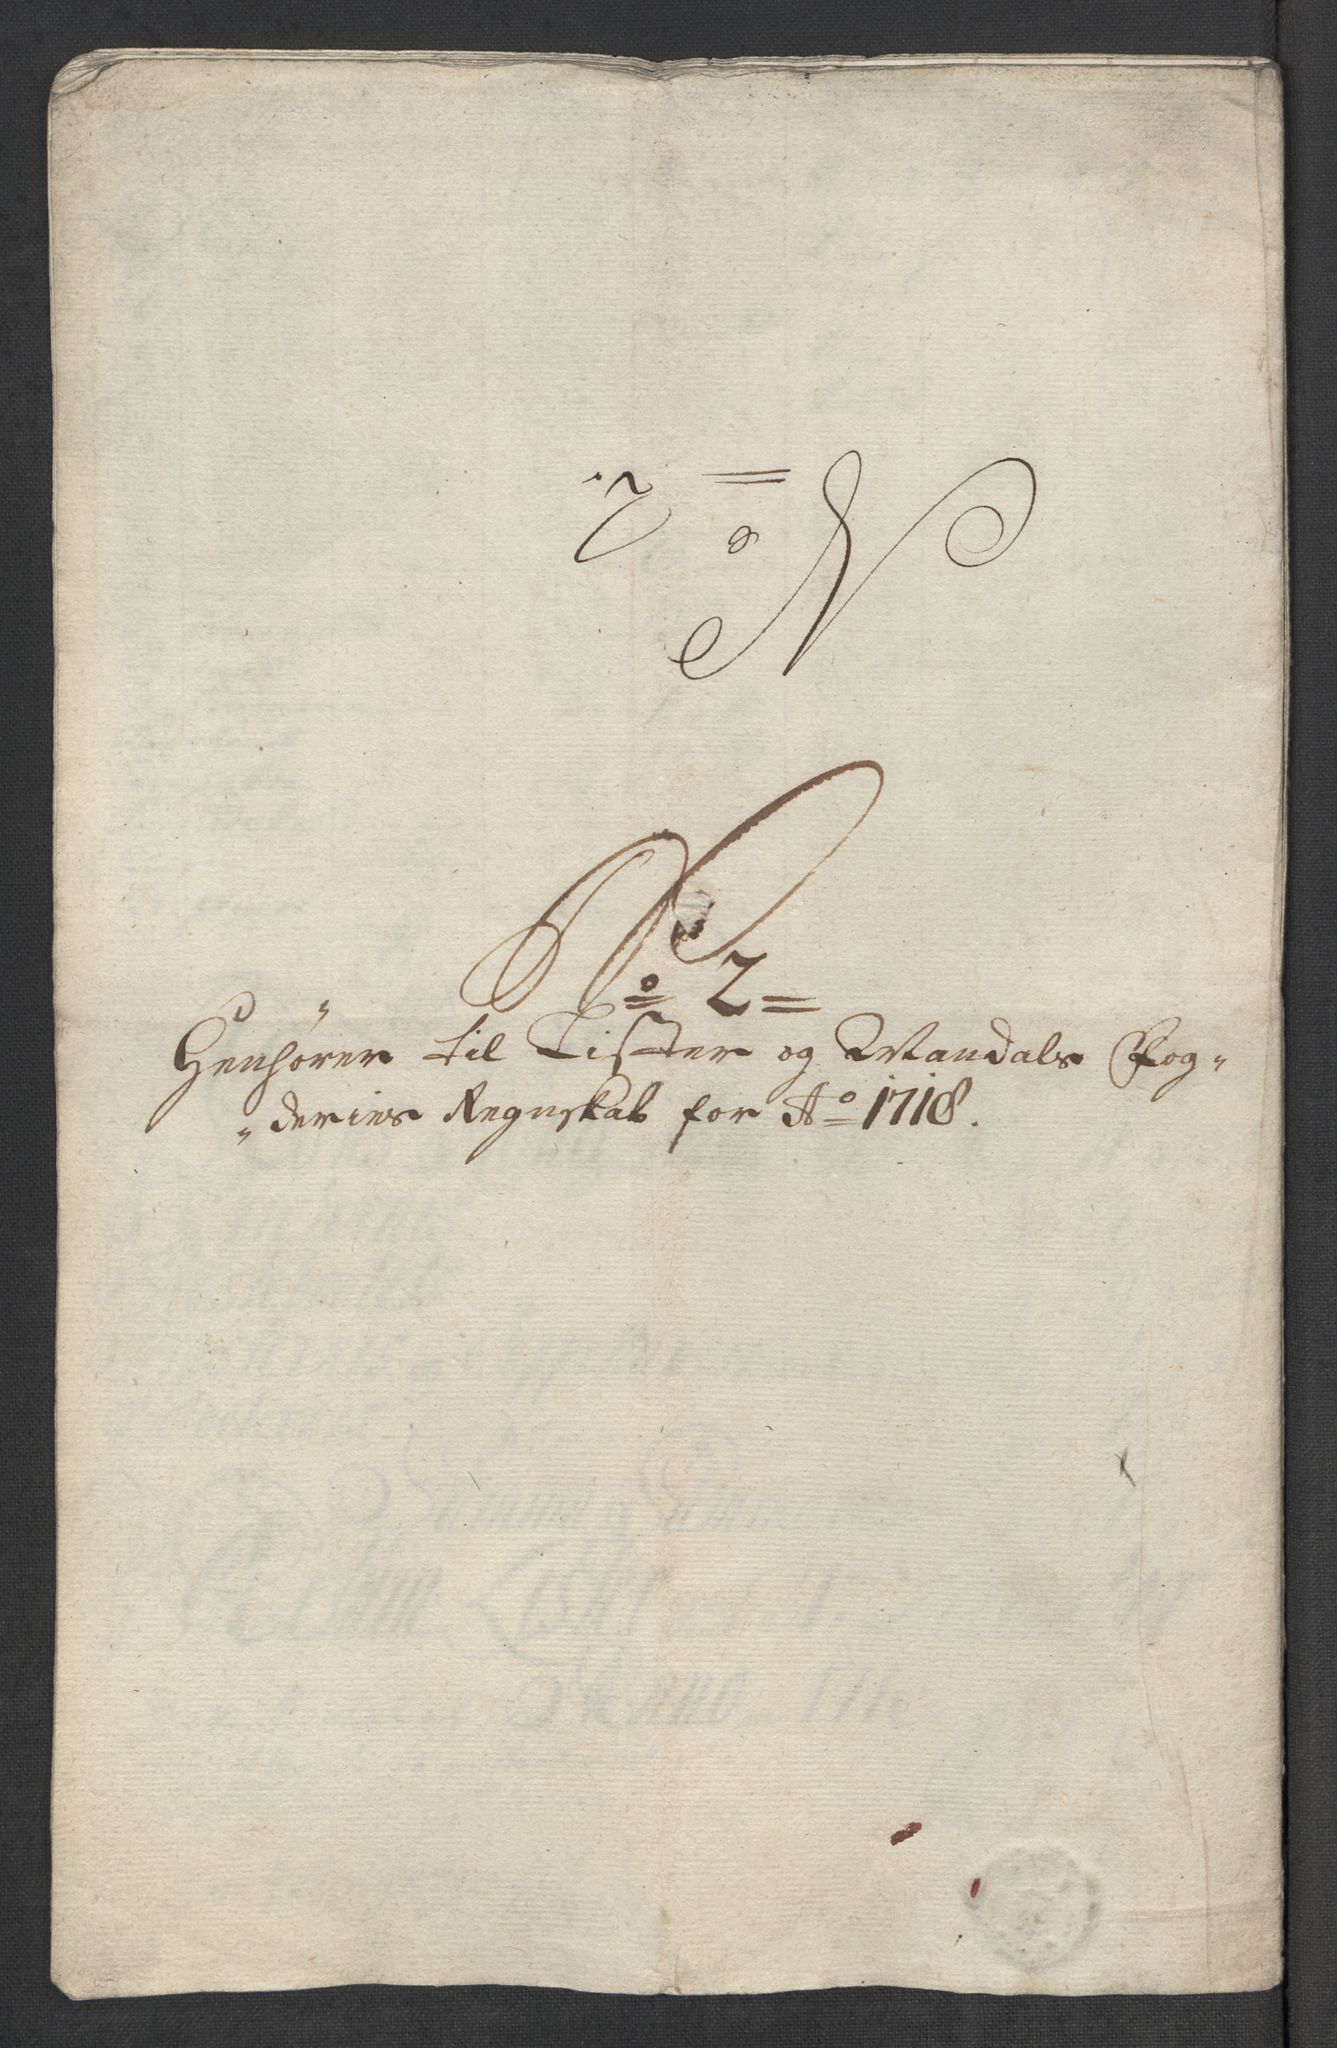 No 2
No 2
Henhører til Lister og Mandals Fog-
deries Regnskab for Ao 1718.